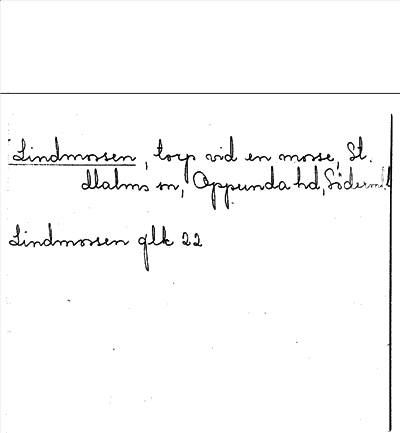 Lindmossen, torp vid en mosse, St.
Malms sn, Oppunda hd, Söderml.
Lindmossen glk 22